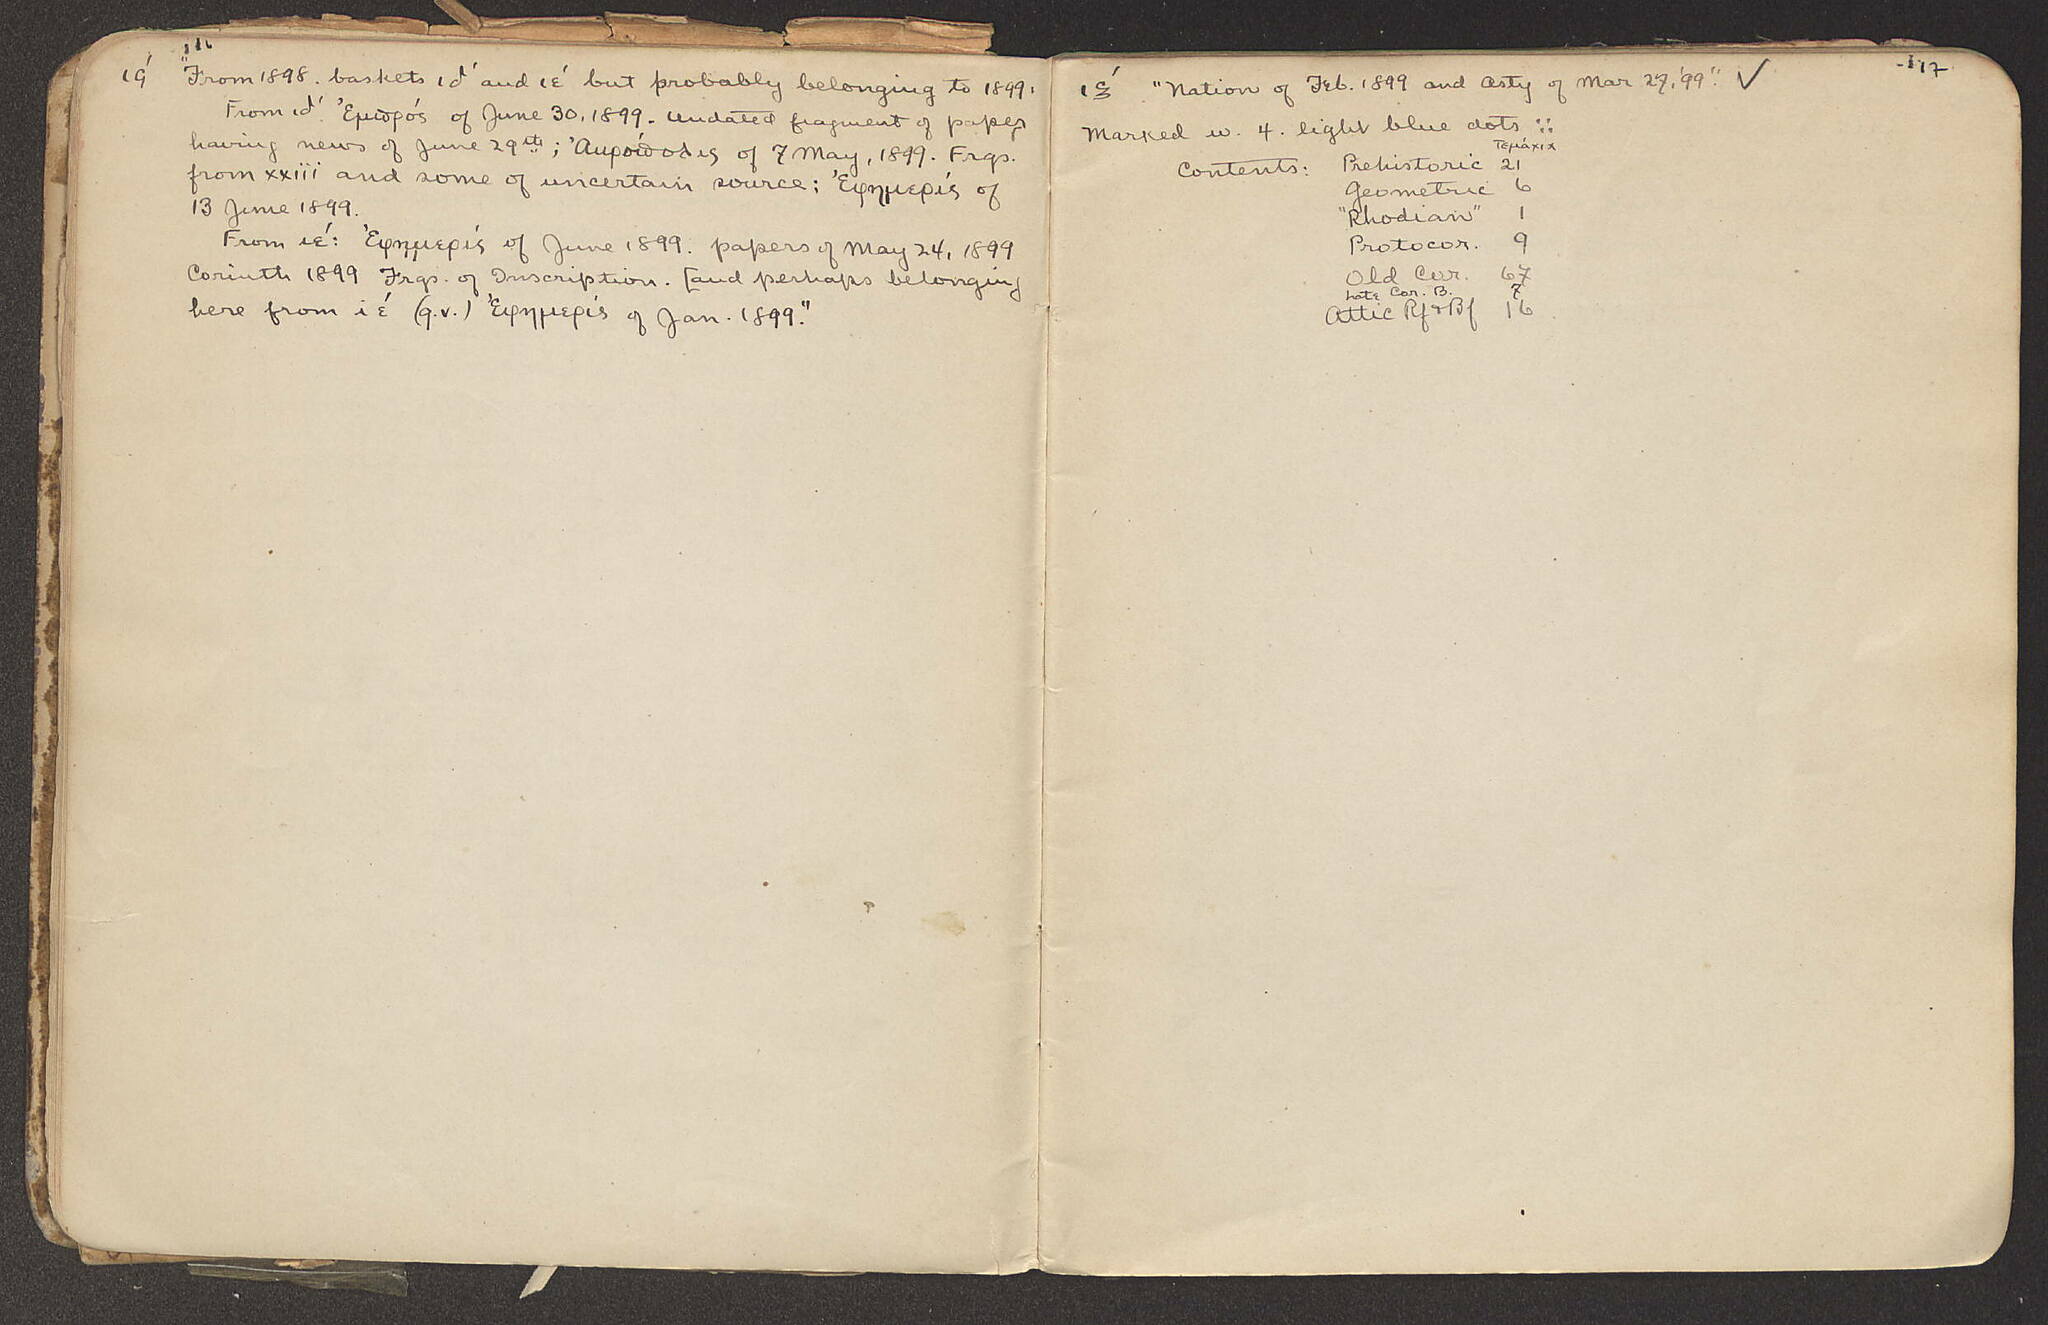 116
ιϛ́ "From 1898. baskets ιδ́ and ιέ but probably belonging to 1899.
From ιδ́. Ἐμπρός of June 30, 1899. Undated fragment of paper
having news of June 29th; Ἀκρόπολις of 7 May, 1899. Frgs.
from xxiii and some of uncertain source; Ἐφημερίς of
13 June 1899.
From ιέ: Ἐφημερίς of June 1899. papers of May 24, 1899
Corinth 1899 Frgs. of Inscription. [and perhaps belonging
here from ιέ (q.v.) Ἐφημερίς of Jan. 1899."
117
"Nation of Feb. 1899 and Asty of Mar 27, '99". ✓
Marked w. 4. light blue dots ::
τεμάχια
Contents: Prehistoric 21
Geometric 6
"Rhodian" 1
Protocor. 9
Old Cor. 67
Late Cor. B. 7
Attic Rf & Bf 16